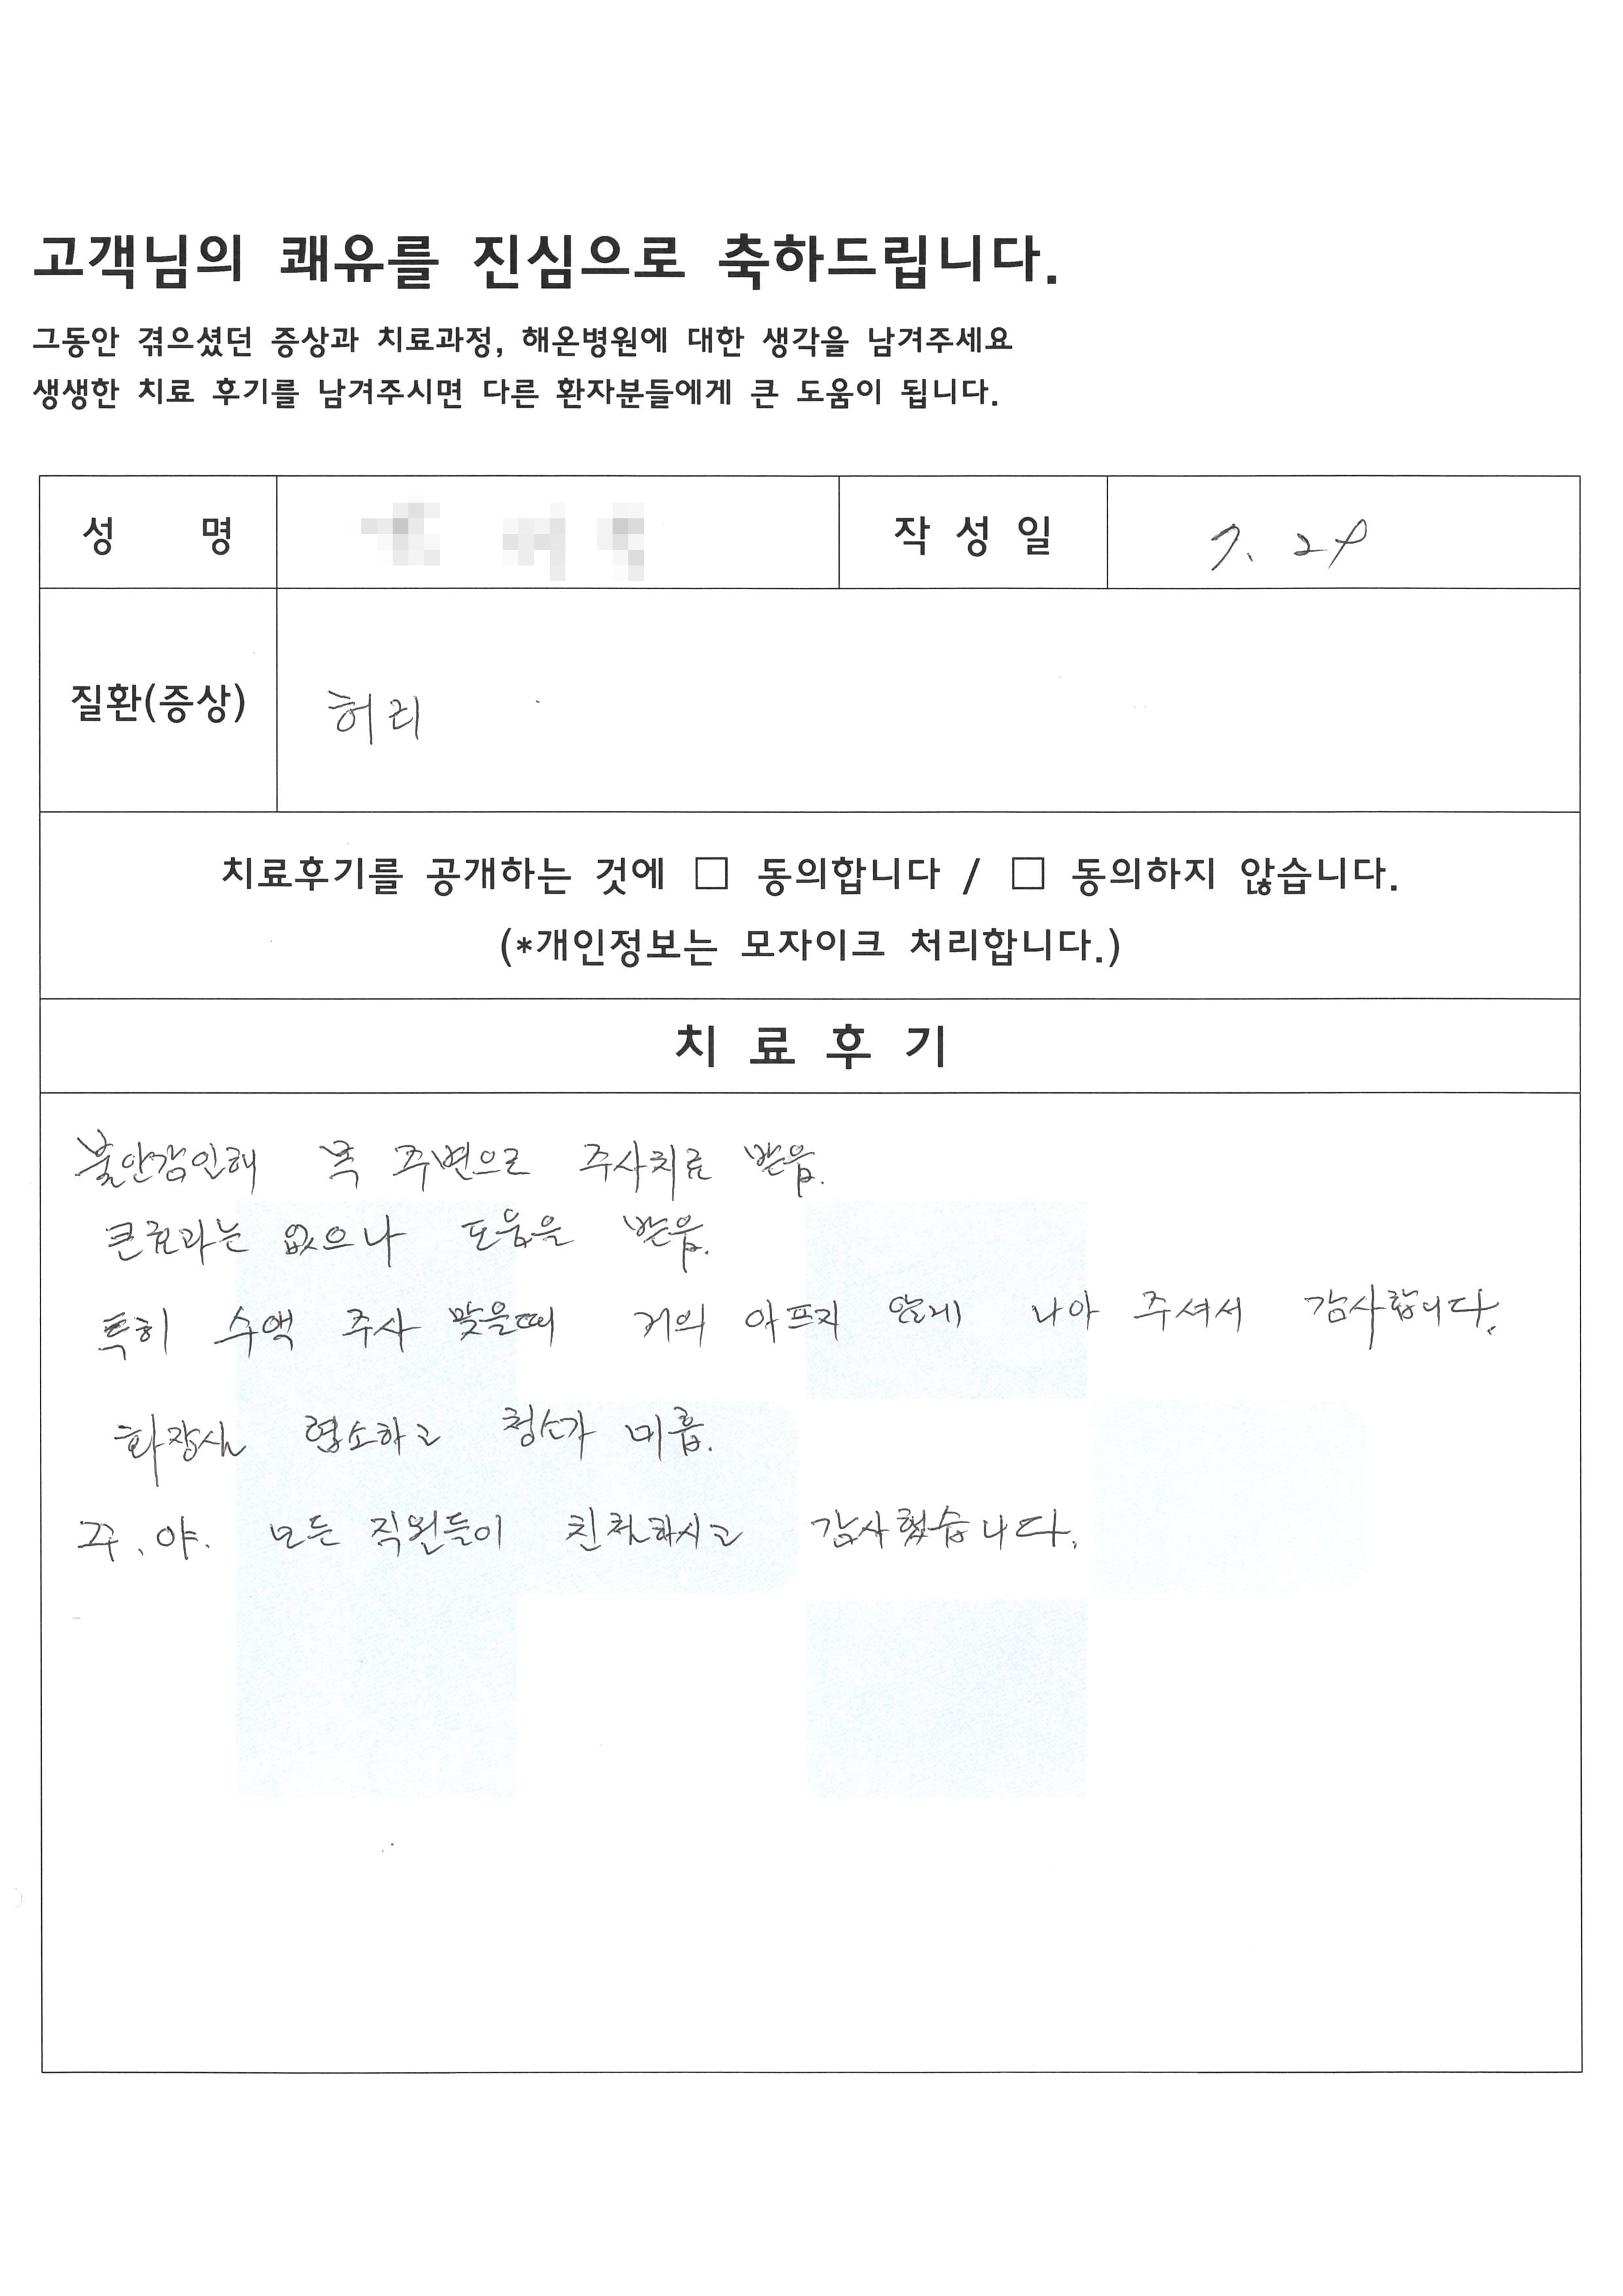 고객님의 쾌유를 진심으로 축하드립니다.
그동안 겪으셨던 증상과 치료과정, 해온병원에 대한 생각을 남겨주세요
생생한 치료 후기를 남겨주시면 다른 환자분들에게 큰 도움이 됩니다.
성 명 작 성 일 7. 24
질환(증상) 허리
치료후기를 공개하는 것에 □ 동의합니다 / □ 동의하지 않습니다.
(*개인정보는 모자이크 처리합니다.)
치 료 후 기
불안감인해 목 주변으로 주사치료 받음.
큰효과는 없으나 도움을 받음.
특히 수액 주사 맞을때 거의 아프지 않게 나아 주셔서 감사합니다.
화장실 협소하고 청소가 미흡.
주.야. 모든 직원들이 친절하시고 감사했습니다.